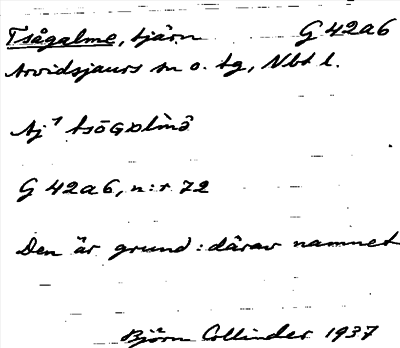 Tsågalme, tjärn G 42a6
Arvidsjaurs sn o. tg, Nbt l.
G 42a6, n:r 72
Den är grund: därav namnet
Björn Collinder 1937